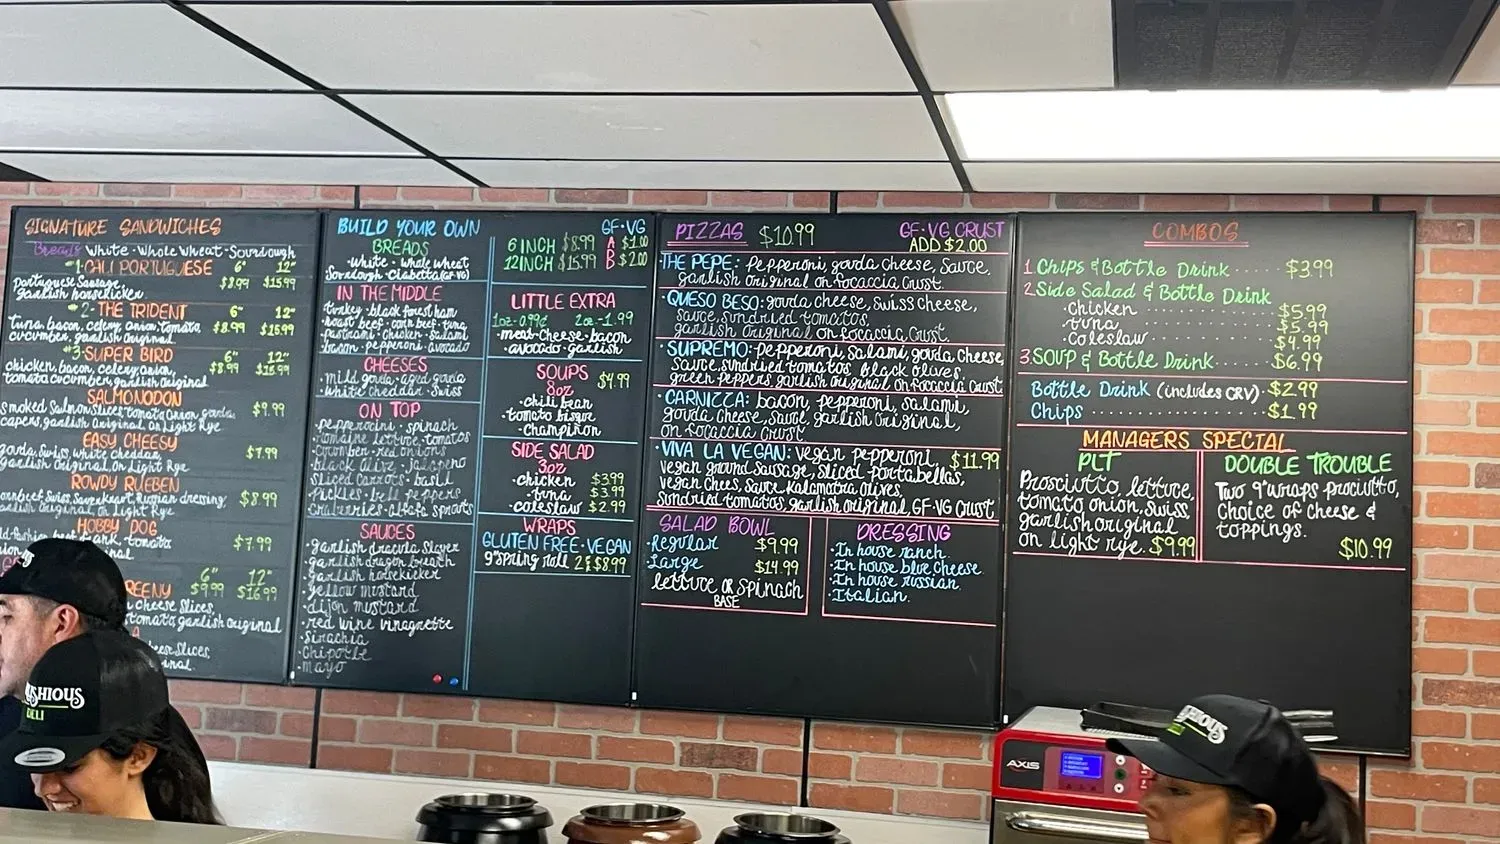 SIGNATURE SANDWICHES
Breads White · Whole Wheat · Sourdough
#1 · CALI PORTUGUESE 6" 12"
Portuguese Sausage, $8.99 $15.99
garlish horsekicker
#2 · THE TRIDENT 6" 12"
Tuna, bacon, celery, onion, tomato, $8.99 $15.99
cucumber, garlish original
#3 · SUPER BIRD 6" 12"
chicken, bacon, celery, onion, $8.99 $15.99
tomato, cucumber, garlish original
SALMONODON
Smoked Salmon slices, tomato, onion, gouda, $9.99
capers, garlish original, on Light Rye
EASY CHEESY
gouda, Swiss, white cheddar, $7.99
garlish original, on Light Rye
ROWDY RUEBEN
Swiss, Sauerkraut, Russian dressing, $8.99
garlish original, on Light Rye
HOBBY DOG
frank, tomato, $7.99
6" 12"
$9.99 $16.99
cheese Slices,
tomato, garlish original
Slices,
BUILD YOUR OWN
BREADS
· White · Whole Wheat
Sourdough · Ciabatta (GF VG)
IN THE MIDDLE
turkey · black forest ham
· roast beef · corn beef · tuna
· pastrami · chicken · salami
· bacon · pepperoni · avocado
CHEESES
· mild gouda · aged gouda
· white cheddar · Swiss
ON TOP
· pepperoncini · spinach
· romaine lettuce · tomatos
· cucumber · red onions
· black olive · jalapeno
· sliced carrots · basil
· pickles · bell peppers
· cranberries · alfafa sprouts
SAUCES
· garlish dracula slayer
· garlish dragon breath
· garlish horsekicker
· yellow mustard
· dijon mustard
· red wine vinagrette
· Sirachia
· Chipotle
· mayo
GF · VG
6 INCH $8.99 A $1.00
12 INCH $15.99 D $2.00
D
LITTLE EXTRA
1oz - 0.99¢ 2oz - 1.99
· meat · cheese · bacon
· avocado · garlish
SOUPS
8oz $4.99
· chili bean
· tomato bisque
· champinon
SIDE SALAD
3oz
· chicken $3.99
· tuna $3.99
· coleslaw $2.99
WRAPS
GLUTEN FREE · VEGAN
9" Spring roll 2 $8.99
PIZZAS $10.99 GF · VG CRUST
ADD $2.00
THE PEPE: Pepperoni, gouda cheese, Sauce,
garlish original on focaccia crust.
· QUESO BESO: gouda cheese, Swiss cheese,
sauce, sundried tomatos,
garlish original on focaccia Crust.
· SUPREMO: Pepperoni, salami, gouda cheese,
sauce, sundried tomatos, black olives,
green peppers, garlish original on focaccia Crust
· CARNIZZA: bacon, pepperoni, salami,
gouda cheese, sauce, garlish original,
on focaccia crust
· VIVA LA VEGAN: vegan pepperoni, $11.99
vegan ground sausage, sliced portabellas,
vegan chees, sauce, Kalamotra olives,
sundried tomatos, garlish original, GF-VG Crust
SALAD BOWL
· Regular $9.99
· Large $14.99
lettuce or Spinach
BASE
DRESSING
· In house ranch.
· In house blue cheese.
· In house russian.
· Italian.
COMBOS
1. Chips & Bottle Drink ...... $3.99
2. Side Salad & Bottle Drink
· chicken ............ $5.99
· tuna ............ $5.99
· coleslaw ............ $4.99
3. SOUP & Bottle Drink ...... $6.99
Bottle Drink (includes CRV) · $2.99
Chips ............ $1.99
MANAGERS SPECIAL
PLT
Prosciutto, lettuce,
tomato, onion, swiss,
garlish original
on light rye. $9.99
DOUBLE TROUBLE
Two 9" wraps prociutto,
Choice of cheese &
toppings.
$10.99
AXIS
DELI